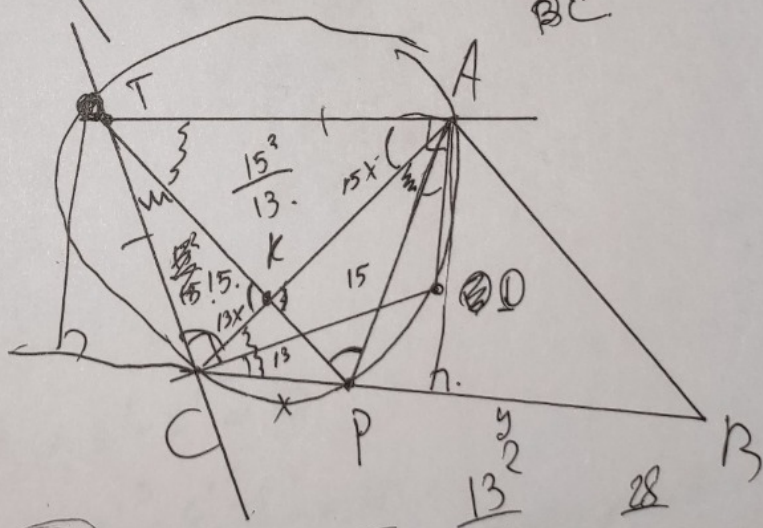 BC.
T
A
15²
13.
15x
K
15.
15
O
13x
13
C
x
P
y
B
13²
28